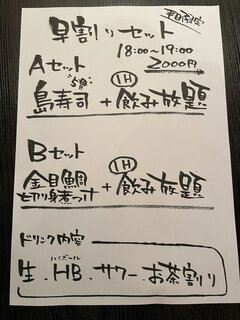 平日限定
早割りセット
18:00~19:00
Aセット 2000円
5貫 1H
島寿司 + 飲み放題
Bセット 1H
金目鯛
切り身煮つけ + 飲み放題
ドリンク内容
ハイボール
生.HB.サワー.お茶割り